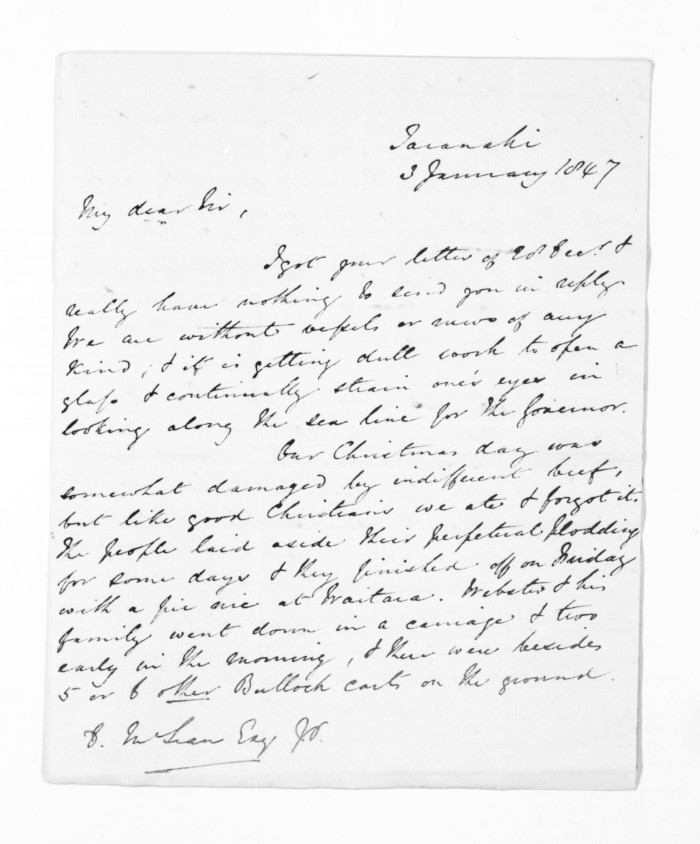 Taranaki
3 January 1847
My dear Sir,
I got your letter of 28 Decr. &
really have nothing to send you in reply.
We are without vessels or news of any
kind; & it is getting dull work to open a
glass & continually strain one's eyes in
looking along the sea line for the Governor.
Our Christmas day was
somewhat damaged by indifferent beef,
but like good Christians we ate & forgot it.
The people laid aside their perpetual plodding
for some days & they finished off on Friday
with a pic nic at Waitara. Webster & his
family went down in a carriage & two
early in the morning, & there were besides
5 or 6 other Bullock carts on the ground.
D. McLean Esq